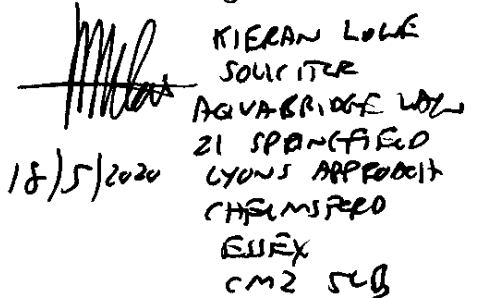 KIERAN LOWE
SOLICITOR
AQUABRIDGE LAW
21 SPRINGFIELD
18/5/2020 LYONS APPROACH
CHELMSFORD
ESSEX
CM2 5LB